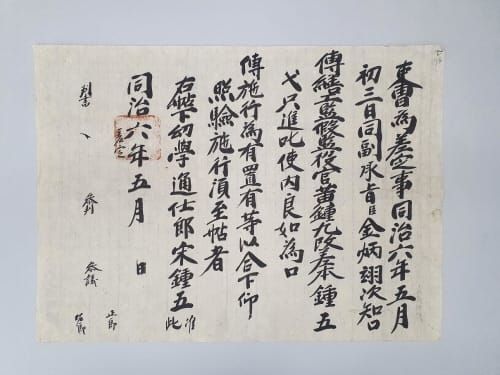 吏曹爲差定事同治六年五月
初三日同副承旨臣金炳翊次知口
傳繕工監假監役官黄鍾九改差宋鍾五
弋只進叱使內良如爲口
傳施行爲有置有等以合下仰
照驗施行須至帖者
右帖下幼學通仕郎宋鍾五 准此
同治六年五月 日
差定
判書 參判 參議 正郎
佐郎